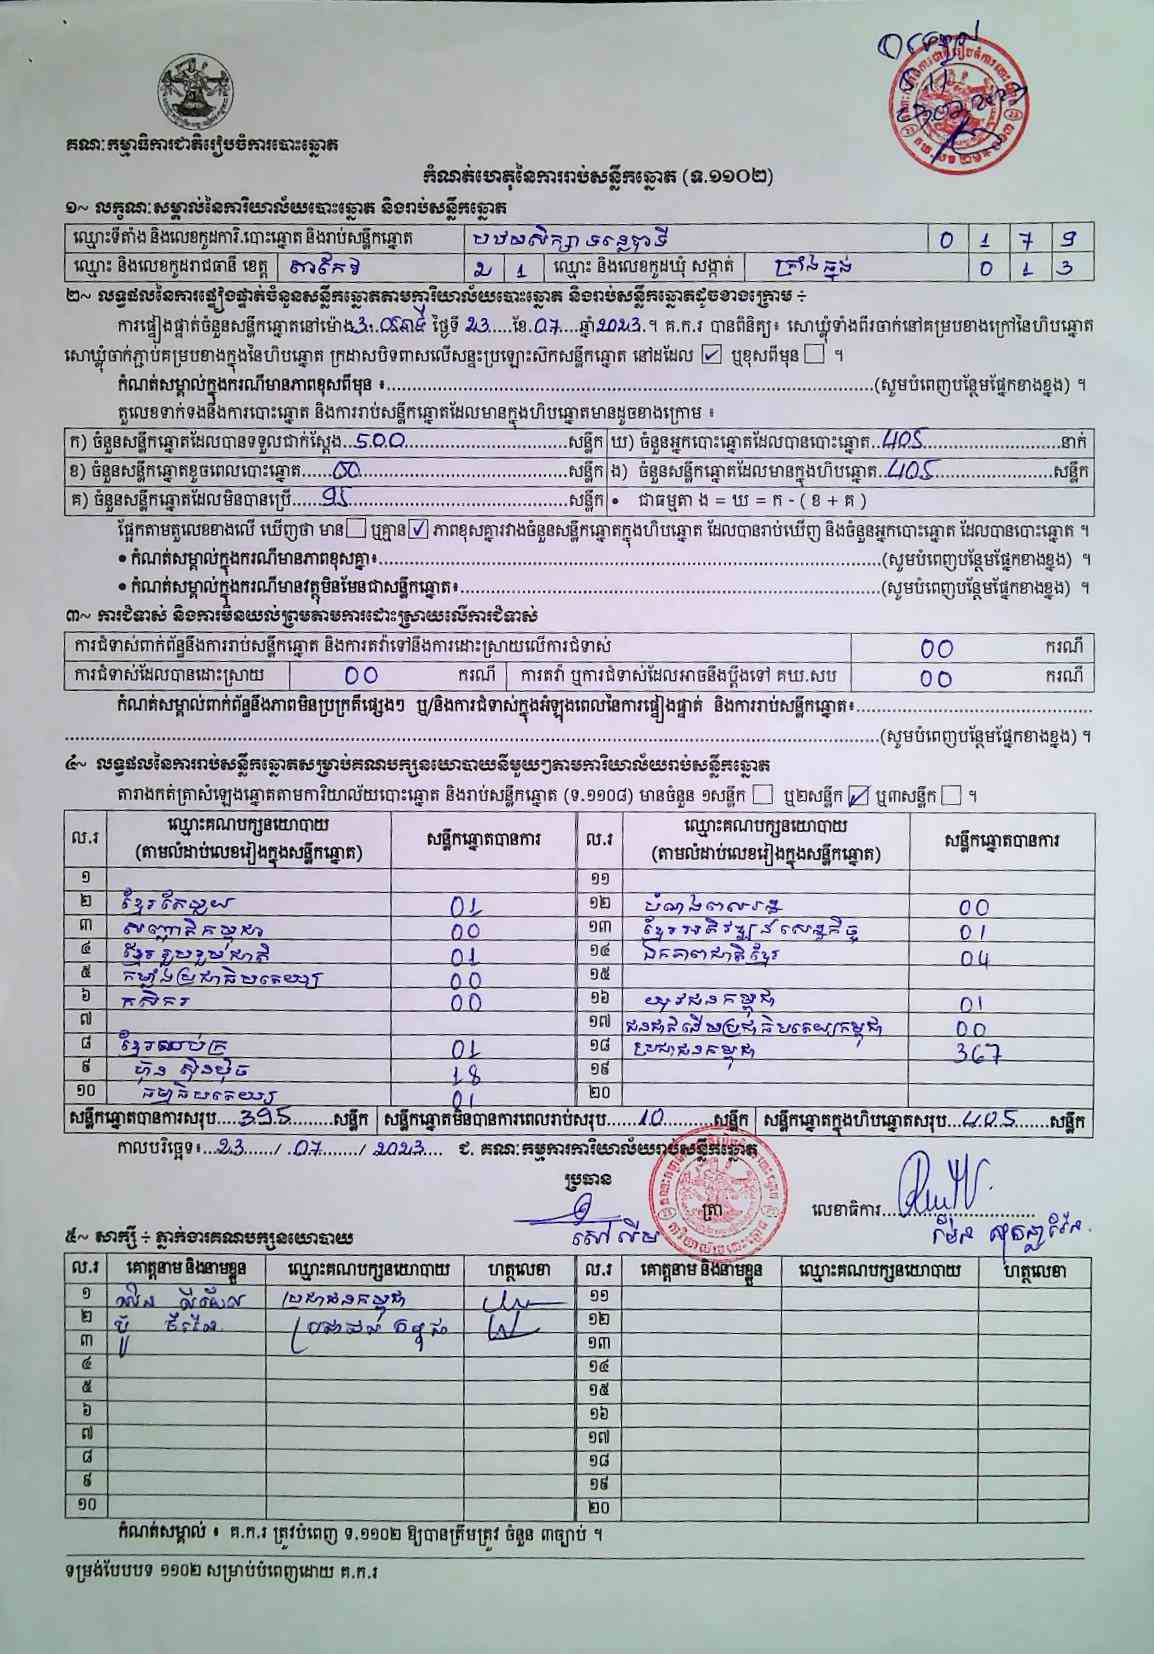 គណៈកម្មាធិការជាតិរៀបចំការបោះឆ្នោត
កំណត់ហេតុនៃការរាប់សន្លឹកឆ្នោត (ទ.១១០២)
១~ លក្ខណៈសម្គាល់នៃការិយាល័យបោះឆ្នោត និងរាប់សន្លឹកឆ្នោត
ឈ្មោះទីតាំង និងលេខកូដការិ.បោះឆ្នោត និងរាប់សន្លឹកឆ្នោត បឋមសិក្សា ទន្លេបាទី 0 1 7 9
ឈ្មោះ និងលេខកូដរាជធានី ខេត្ត តាកែវ 2 1 ឈ្មោះ និងលេខកូដឃុំ សង្កាត់ ត្រាំងធ្នង់ 0 1 3
២~ លទ្ធផលនៃការផ្ទៀងផ្ទាត់ចំនួនសន្លឹកឆ្នោតតាមការិយាល័យបោះឆ្នោត និងរាប់សន្លឹកឆ្នោតដូចខាងក្រោម ÷
ការផ្ទៀងផ្ទាត់ចំនួនសន្លឹកឆ្នោតនៅម៉ោង 3 ថ្ងៃទី 23 ខែ 07 ឆ្នាំ 2023 ។ គ.ក.រ បានពិនិត្យ៖ សោឃ្លុំទាំងពីរចាក់នៅគម្របខាងក្រៅនៃហិបឆ្នោត
សោឃ្លុំចាក់ភ្ជាប់គម្របខាងក្នុងនៃហិបឆ្នោត ក្រដាសបិទពាសលើសន្ទះប្រឡោះស៊កសន្លឹកឆ្នោត នៅដដែល ☑ ឬខុសពីមុន ☐ ។
កំណត់សម្គាល់ក្នុងករណីមានភាពខុសពីមុន ៖ (សូមបំពេញបន្ថែមផ្នែកខាងខ្នង) ។
តួលេខទាក់ទងនឹងការបោះឆ្នោត និងការរាប់សន្លឹកឆ្នោតដែលមានក្នុងហិបឆ្នោតមានដូចខាងក្រោម ៖
ក) ចំនួនសន្លឹកឆ្នោតដែលបានទទួលជាក់ស្តែង 500 សន្លឹក ឃ) ចំនួនអ្នកបោះឆ្នោតដែលបានបោះឆ្នោត 405 នាក់
ខ) ចំនួនសន្លឹកឆ្នោតខូចពេលបោះឆ្នោត 00 សន្លឹក ង) ចំនួនសន្លឹកឆ្នោតដែលមានក្នុងហិបឆ្នោត 405 សន្លឹក
គ) ចំនួនសន្លឹកឆ្នោតដែលមិនបានប្រើ 95 សន្លឹក • ជាធម្មតា ង = ឃ = ក - ( ខ + គ )
ផ្អែកតាមតួលេខខាងលើ ឃើញថា មាន ☐ ឬគ្មាន ☑ ភាពខុសគ្នារវាងចំនួនសន្លឹកឆ្នោតក្នុងហិបឆ្នោត ដែលបានរាប់ឃើញ និងចំនួនអ្នកបោះឆ្នោត ដែលបានបោះឆ្នោត ។
• កំណត់សម្គាល់ក្នុងករណីមានភាពខុសគ្នា៖ (សូមបំពេញបន្ថែមផ្នែកខាងខ្នង) ។
• កំណត់សម្គាល់ក្នុងករណីមានវត្ថុមិនមែនជាសន្លឹកឆ្នោត៖ (សូមបំពេញបន្ថែមផ្នែកខាងខ្នង) ។
៣~ ការជំទាស់ និងការមិនយល់ព្រមតាមការដោះស្រាយលើការជំទាស់
ការជំទាស់ពាក់ព័ន្ធនឹងការរាប់សន្លឹកឆ្នោត និងការតវ៉ាទៅនឹងការដោះស្រាយលើការជំទាស់ 00 ករណី
ការជំទាស់ដែលបានដោះស្រាយ 00 ករណី ការតវ៉ា ឬការជំទាស់ដែលអាចនឹងប្តឹងទៅ គឃ.សប 00 ករណី
កំណត់សម្គាល់ពាក់ព័ន្ធនឹងភាពមិនប្រក្រតីផ្សេងៗ ឬ/និងការជំទាស់ក្នុងអំឡុងពេលនៃការផ្ទៀងផ្ទាត់ និងការរាប់សន្លឹកឆ្នោត៖
(សូមបំពេញបន្ថែមផ្នែកខាងខ្នង) ។
៤~ លទ្ធផលនៃការរាប់សន្លឹកឆ្នោតសម្រាប់គណបក្សនយោបាយនីមួយៗតាមការិយាល័យរាប់សន្លឹកឆ្នោត
តារាងកត់ត្រាសំឡេងឆ្នោតតាមការិយាល័យបោះឆ្នោត និងរាប់សន្លឹកឆ្នោត (ទ.១១០៨) មានចំនួន ១សន្លឹក ☐ ឬ២សន្លឹក ☑ ឬ៣សន្លឹក ☐ ។
ល.រ ឈ្មោះគណបក្សនយោបាយ (តាមលំដាប់លេខរៀងក្នុងសន្លឹកឆ្នោត) សន្លឹកឆ្នោតបានការ ល.រ ឈ្មោះគណបក្សនយោបាយ (តាមលំដាប់លេខរៀងក្នុងសន្លឹកឆ្នោត) សន្លឹកឆ្នោតបានការ
១ ១១
២ ខ្មែរតែមួយ 01 ១២ 00
៣ សញ្ជាតិកម្ពុជា 00 ១៣ ខ្មែរអភិវឌ្ឍន៍សេដ្ឋកិច្ច 01
៤ ខ្មែររួបរួមជាតិ 01 ១៤ ឯកភាពជាតិខ្មែរ 04
៥ កម្លាំងប្រជាធិបតេយ្យ 00 ១៥
៦ កសិករ 00 ១៦ យុវជនកម្ពុជា 01
៧ ១៧ ជនជាតិដើមប្រជាធិបតេយ្យកម្ពុជា 00
៨ ខ្មែរឈប់ក្រ 01 ១៨ ប្រជាជនកម្ពុជា 367
៩ ហ៊្វុនស៊ិនប៉ិច 18 ១៩
១០ ធម្មាធិបតេយ្យ 01 ២០
សន្លឹកឆ្នោតបានការសរុប 395 សន្លឹក សន្លឹកឆ្នោតមិនបានការពេលរាប់សរុប 10 សន្លឹក សន្លឹកឆ្នោតក្នុងហិបឆ្នោតសរុប 405 សន្លឹក
កាលបរិច្ឆេទ៖ 23 / 07 / 2023 ជ. គណៈកម្មការការិយាល័យរាប់សន្លឹកឆ្នោត
ប្រធាន
ត្រា លេខាធិការ
សៅ លឹម
៥~ សាក្សី ÷ ភ្នាក់ងារគណបក្សនយោបាយ
ល.រ គោត្តនាម និងនាមខ្លួន ឈ្មោះគណបក្សនយោបាយ ហត្ថលេខា ល.រ គោត្តនាម និងនាមខ្លួន ឈ្មោះគណបក្សនយោបាយ ហត្ថលេខា
១ ប្រជាជនកម្ពុជា ១១
២ ប្រជាជនកម្ពុជា ១២
៣ ១៣
៤ ១៤
៥ ១៥
៦ ១៦
៧ ១៧
៨ ១៨
៩ ១៩
១០ ២០
កំណត់សម្គាល់ ៖ គ.ក.រ ត្រូវបំពេញ ទ.១១០២ ឱ្យបានត្រឹមត្រូវ ចំនួន ៣ច្បាប់ ។
ទម្រង់បែបបទ ១១០២ សម្រាប់បំពេញដោយ គ.ក.រ